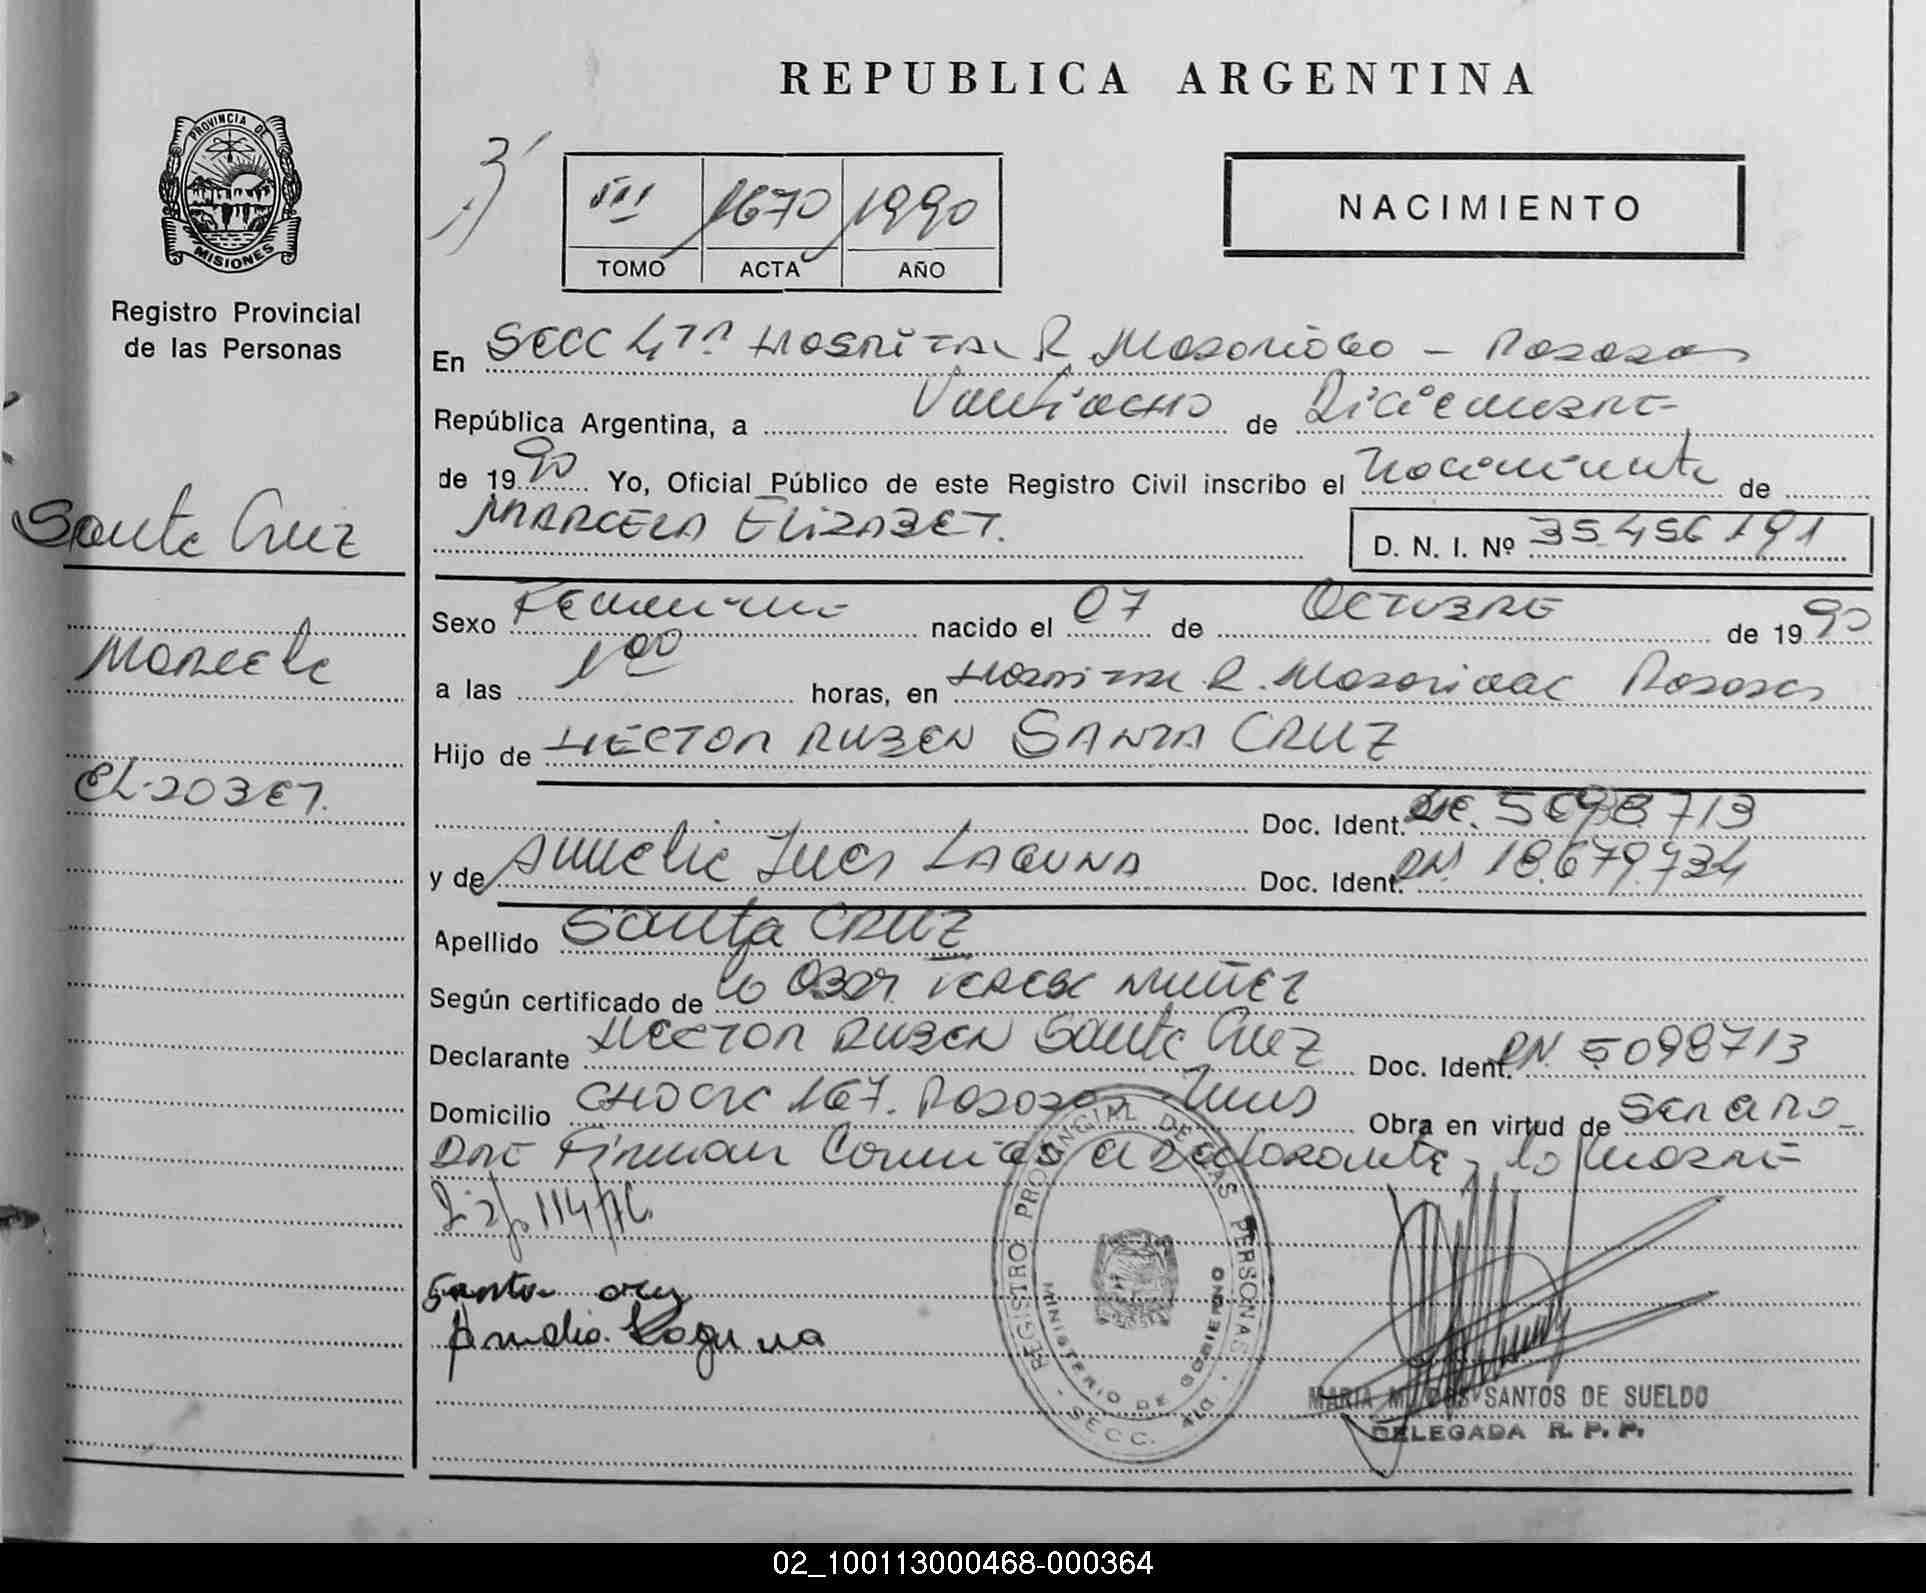 REPUBLICA ARGENTINA
PROVINCIA DE
MISIONES
Registro Provincial
de las Personas
III 1670 1990
TOMO ACTA AÑO
NACIMIENTO
En SECC 4ta HOSPITAL R. Madariaga - Posadas
República Argentina, a Veintiocho de Diciembre
de 1990 Yo, Oficial Público de este Registro Civil inscribo el nacimiento de
MARCELA ELIZABET.
D. N. I. Nº 35.456.191
Santa Cruz
Marcela
Elizabet.
Sexo Femenino nacido el 07 de OCTUBRE de 1990
a las 1 00 horas, en Hospital R. Madariaga Posadas
Hijo de HECTOR RUBEN SANTA CRUZ
Doc. Ident. 5098713
y de Amelia Ines LAGUNA Doc. Ident. DNI 18.679.734
Apellido Santa CRUZ
Según certificado de la Obst. Teresa MUÑEZ
Declarante HECTOR RUBEN Santa Cruz Doc. Ident. DNI 5098713
Domicilio 167. Posadas Mnes Obra en virtud de ser el Pa-
dre Firman Comu la madre
114/76
Santa cruz
Amelia Laguna
REGISTRO PROVINCIAL DE LAS PERSONAS
MINISTERIO DE GOBIERNO
SECC. 4ta
MARIA M. DOS SANTOS DE SUELDO
DELEGADA R. P. P.
02_100113000468-000364